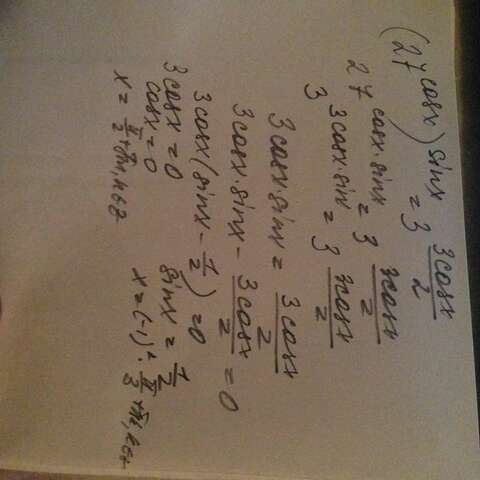 (27^cosx)^sinx = 3^(3cosx/2)
27^(cosx·sinx) = 3^(3cosx/2)
3^(3cosx·sinx) = 3^(3cosx/2)
3cosx·sinx = 3cosx/2
3cosx·sinx - 3cosx/2 = 0
3cosx(sinx - 1/2) = 0
3cosx = 0 sinx = 1/2
cosx = 0 x = (-1)^k · π/3 + πk, k∈Z
x = π/2 + πn, n∈Z